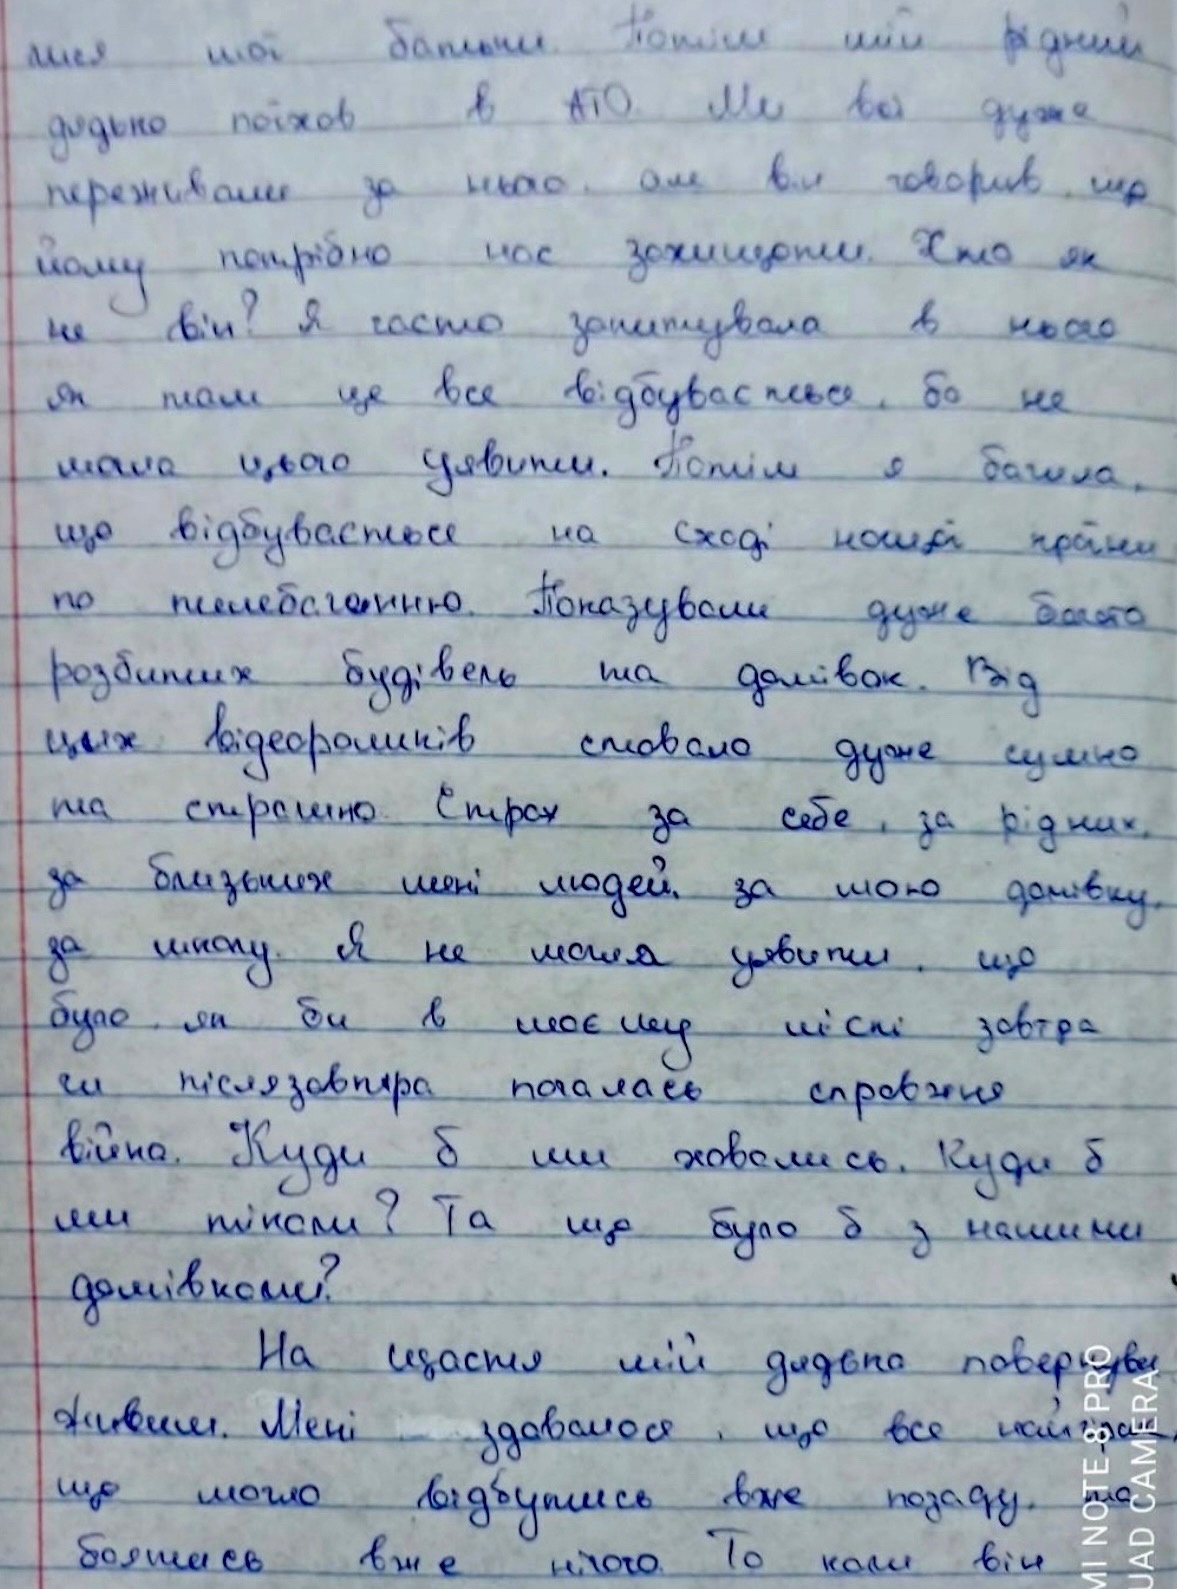 лися мої батьки. Потім мій рідний
дядько поїхав в АТО. Ми всі дуже
переживали за нього, але він говорив, що
йому потрібно нас захищати. Хто як
не він? Я часто запитувала в нього
як там це все відбувається, бо не
могла цього уявити. Потім я бачила,
що відбувається на сході нашої країни
по телебаченню. Показували дуже багато
розбитих будівель та домівок. Від
цих відеороликів ставало дуже сумно
та страшно. Страх за себе, за рідних,
за близьких мені людей, за мою домівку,
за школу. Я не могла уявити, що
було як би в моєму місті завтра
чи післязавтра почалась справжня
війна. Куди б ми ховались. Куди б
ми тікали? Та що було б з нашими
домівками?
На щастя мій дядько
живим. Мені здавалося, що все
що могло відбутись вже позаду, та
боятись вже нічого. То коли він
MI NOTE 8 PRO
UAD CAMERA